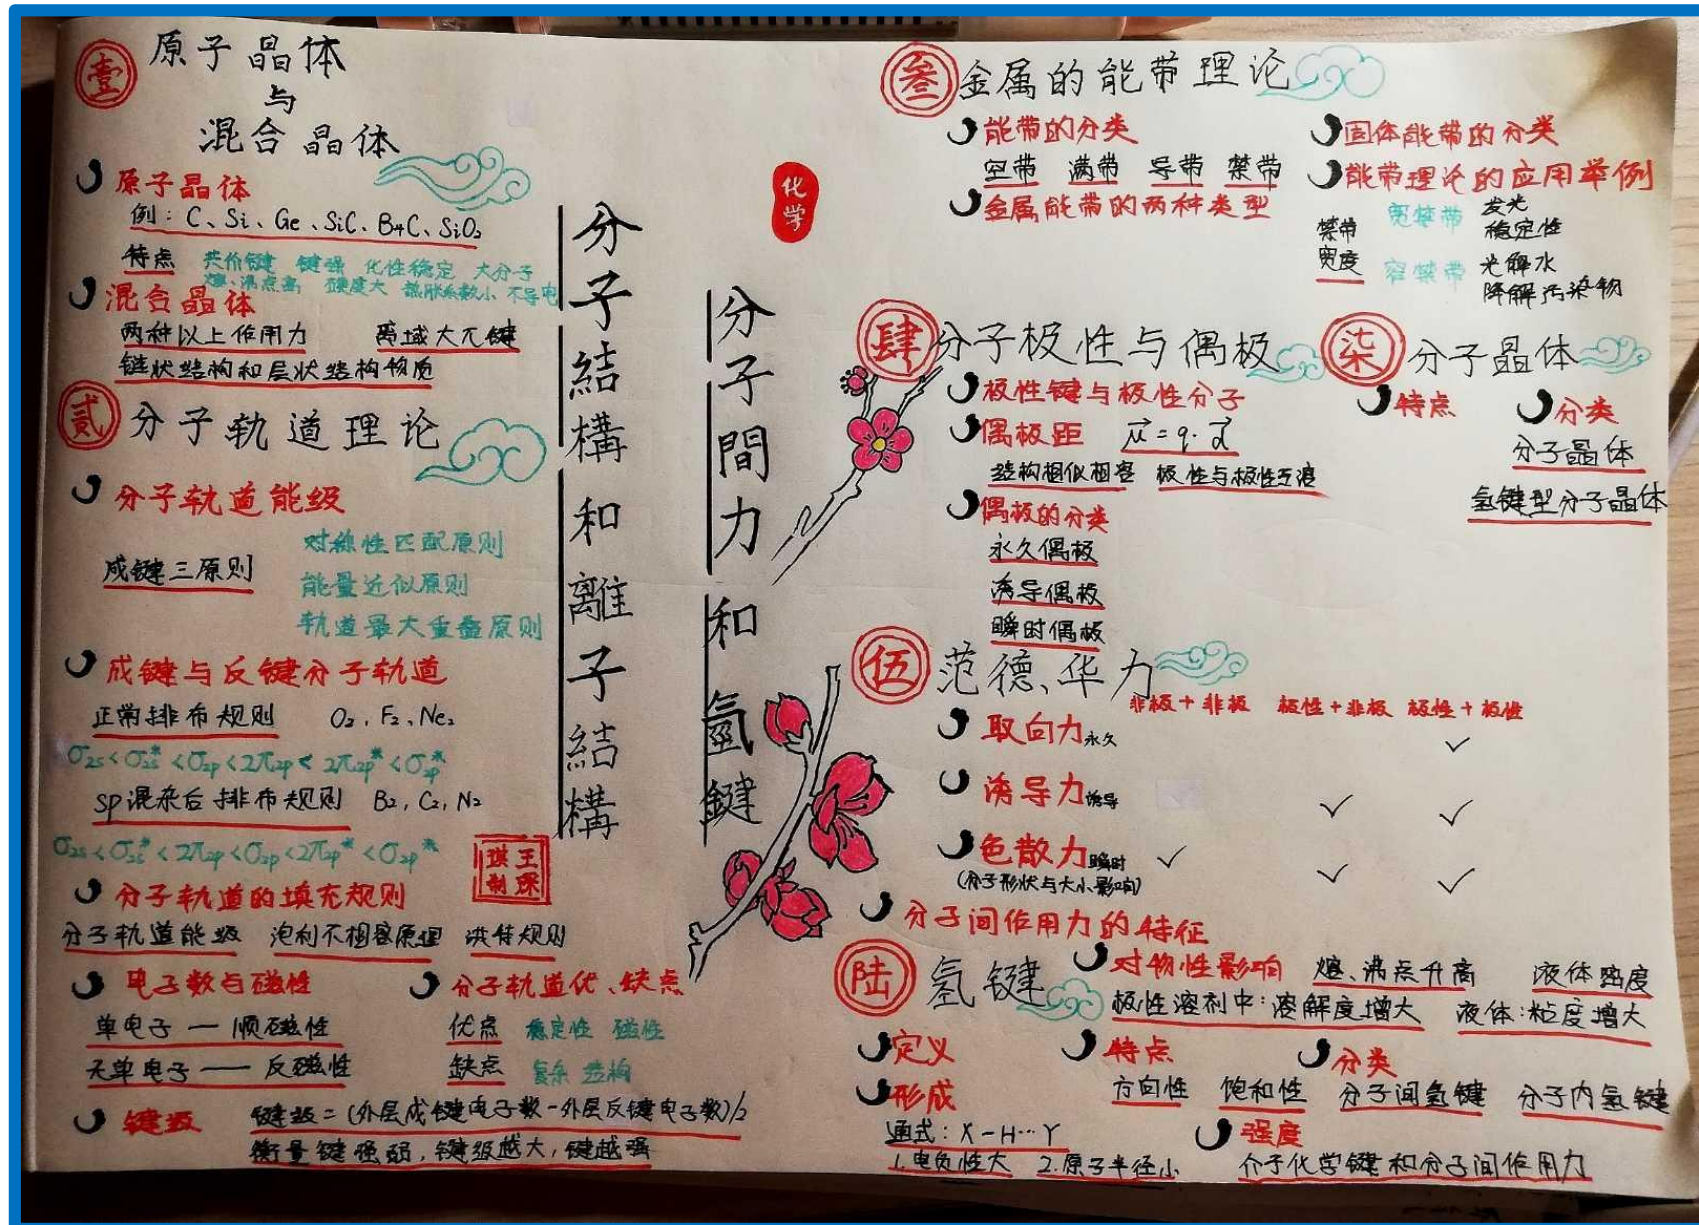 壹 原子晶体
与
混合晶体
原子晶体
例：C、Si、Ge、SiC、B4C、SiO2
特点 共价键 键强 化性稳定 大分子
熔、沸点高 硬度大 热胀系数小 不导电
混合晶体
两种以上作用力 离域大π键
链状结构和层状结构物质
贰 分子轨道理论
分子轨道能级
成键三原则
对称性匹配原则
能量近似原则
轨道最大重叠原则
成键与反键分子轨道
正常排布规则 O2, F2, Ne2
σ2s<σ2s*<σ2p<2π2p<2π2p*<σ2p*
sp混杂后排布规则 B2, C2, N2
σ2s<σ2s*<2π2p<σ2p<2π2p*<σ2p*
分子轨道的填充规则
分子轨道能级 泡利不相容原理 洪特规则
电子数与磁性
单电子 — 顺磁性
无单电子 — 反磁性
分子轨道优、缺点
优点 稳定性 磁性
缺点 复杂 结构
键级 键级=(外层成键电子数-外层反键电子数)/2
衡量键强弱,键级越大,键越强
分子結構和離子結構
分子間力和氫鍵
化学
叁 金属的能带理论
能带的分类
空带 满带 导带 禁带
金属能带的两种类型
固体能带的分类
能带理论的应用举例
禁带
宽度
宽禁带 发光
稳定性
窄禁带 光解水
降解污染物
肆 分子极性与偶极
极性键与极性分子
偶极距 μ=q·d
结构相似相容 极性与极性互溶
偶极的分类
永久偶极
诱导偶极
瞬时偶极
柒 分子晶体
特点 分类
分子晶体
氢键型分子晶体
伍 范德、华力
非极+非极 极性+非极 极性+极性
取向力 永久 ✓
诱导力 诱导 ✓ ✓
色散力 瞬时 ✓ ✓ ✓
(分子形状与大小影响)
分子间作用力的特征
陆 氢键
对物性影响 熔、沸点升高 液体密度
极性溶剂中：溶解度增大 液体：粘度增大
定义 特点 分类
方向性 饱和性 分子间氢键 分子内氢键
形成
通式：X-H…Y
1.电负性大 2.原子半径小
强度
介于化学键和分子间作用力